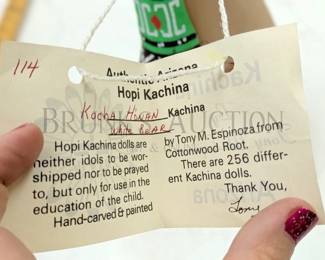 114
Authentic Arizona
Hopi Kachina
Kocha Honan Kachina
White Bear
Hopi Kachina dolls are
neither idols to be wor-
shipped nor to be prayed
to, but only for use in the
education of the child.
Hand-carved & painted
by Tony M. Espinoza from
Cottonwood Root.
There are 256 differ-
ent Kachina dolls.
Thank You,
Tony